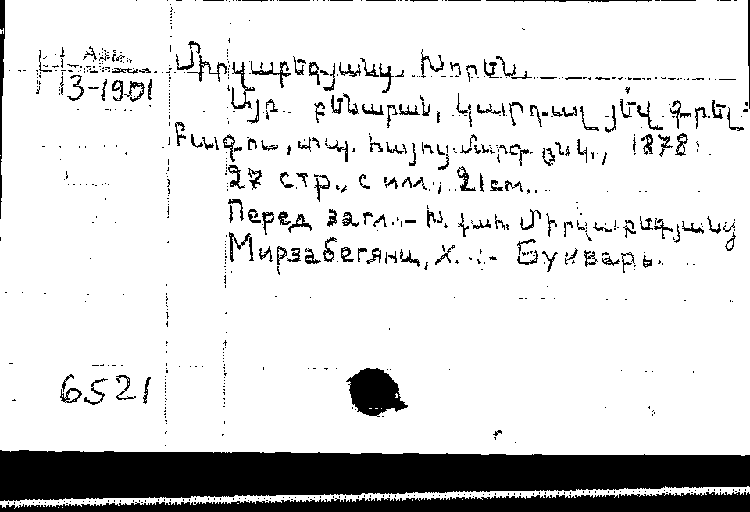 Арм.
3-1901
Միրզաբեգյանց, Խորեն.
Այբ բենարան, կարդալ յեվ գրել:
Բագու, տպ. հայոց մարդ. ընկ., 1878.
27 стр., с илл., 21см.
Перед загл.:- Խ. քահ. Միրզաբեգյանց
Мирзабегянц, Х. :- Букварь.
6521